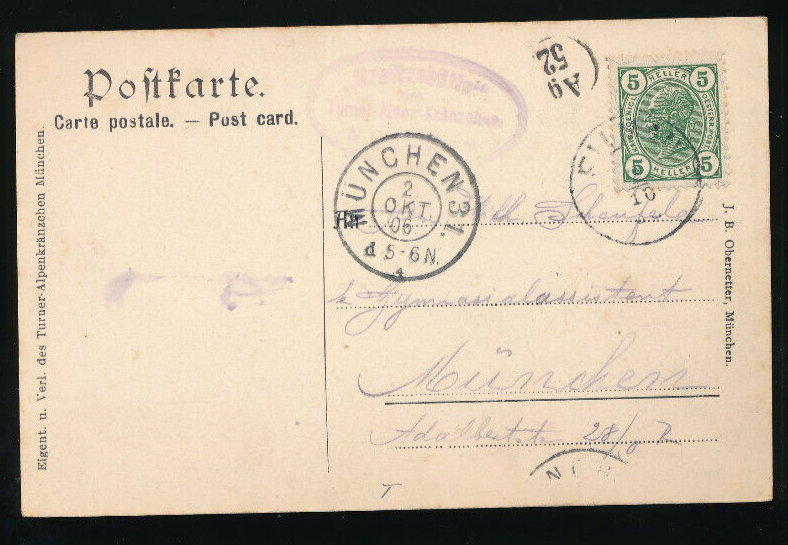 Postkarte.
Carte postale. — Post card.
Eigent. u. Verl. des Turner-Alpenkränzchen München.
Turner-Alpen-Kränzchen
Ag
52
5 HELLER 5
5 HELLER 5
MÜNCHEN 31.
2
OKT.
06
5-6 N.
4
10
An
k. Gymnasialassistent
München
Adalbertstr. 28/
J. B. Obernetter, München.